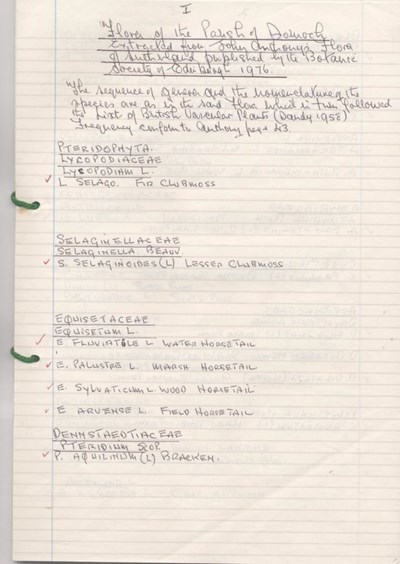 I
Flora of the Parish of Dornoch
Extracted from John Anthony's Flora
of Sutherland published by the Botanic
Society of Edinburgh 1976.
The sequence of genera and the nomenclature of the
species are as in the said flora which in turn followed
the List of British Vascular Plants (Dandy 1958)
Frequency conform to Anthony page 43.
PTERIDOPHYTA.
LYCOPODIACEAE
LYCOPODIUM L.
L SELAGO. FIR CLUBMOSS
SELAGINELLACEAE
SELAGINELLA BEAUV
S. SELAGINOIDES (L) LESSER CLUBMOSS
EQUISETACEAE
EQUISETUM L.
E FLUVIATILE L WATER HORSETAIL
E. PALUSTRE L MARSH HORSETAIL
E. SYLVATICUM L WOOD HORSETAIL
E ARVENSE L FIELD HORSETAIL
DENNSTAEDTIACEAE
PTERIDIUM SCOP
P. AQUILINUM (L) BRACKEN.